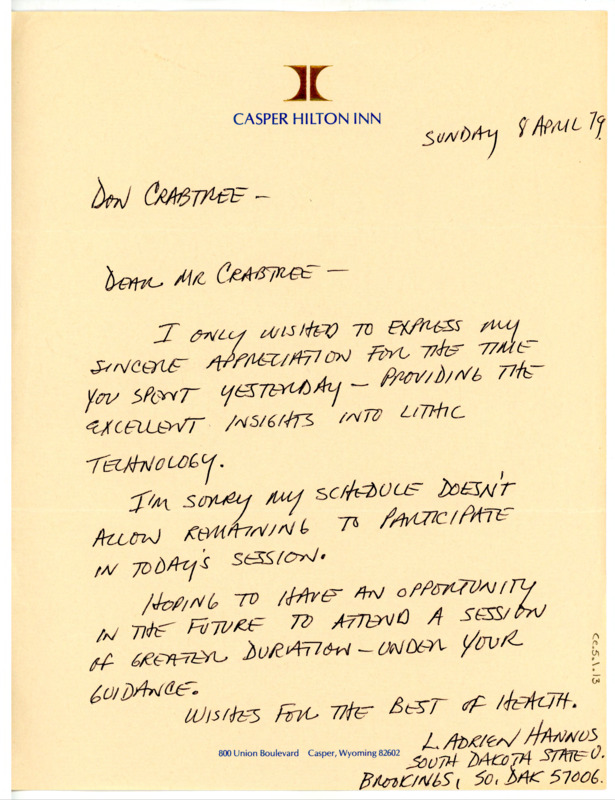 CASPER HILTON INN
SUNDAY 8 APRIL 79
DON CRABTREE —
DEAR MR CRABTREE —
I ONLY WISHED TO EXPRESS MY
SINCERE APPRECIATION FOR THE TIME
YOU SPENT YESTERDAY — PROVIDING THE
EXCELLENT INSIGHTS INTO LITHIC
TECHNOLOGY.
I'M SORRY MY SCHEDULE DOESN'T
ALLOW REMAINING TO PARTICIPATE
IN TODAY'S SESSION.
HOPING TO HAVE AN OPPORTUNITY
IN THE FUTURE TO ATTEND A SESSION
OF GREATER DURATION — UNDER YOUR
GUIDANCE.
WISHES FOR THE BEST OF HEALTH.
L. ADRIEN HANNUS
SOUTH DAKOTA STATE U.
BROOKINGS, SO. DAK 57006.
800 Union Boulevard Casper, Wyoming 82602
Cc.5.1.13